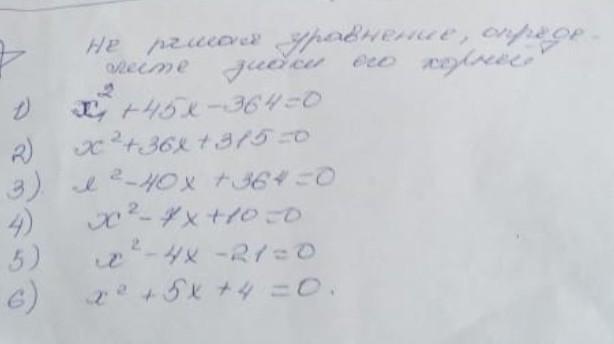 Не решая уравнение, опреде-
лите знаки его корней
1) x² + 45x - 364 = 0
2) x² + 36x + 315 = 0
3) x² - 40x + 364 = 0
4) x² - 7x + 10 = 0
5) x² - 4x - 21 = 0
6) x² + 5x + 4 = 0.